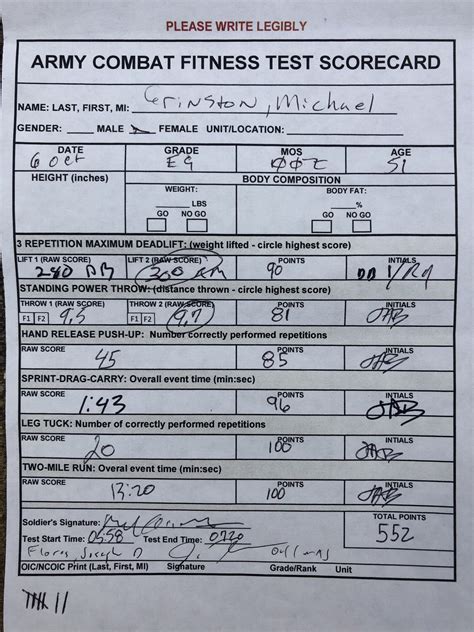 PLEASE WRITE LEGIBLY
ARMY COMBAT FITNESS TEST SCORECARD
NAME: LAST, FIRST, MI: Grinston, Michael
GENDER: ___ MALE ___ FEMALE UNIT/LOCATION:
DATE GRADE MOS AGE
6 Oct E9 00Z 51
HEIGHT (inches) BODY COMPOSITION
WEIGHT: BODY FAT:
LBS %
GO NO GO GO NO GO
3 REPETITION MAXIMUM DEADLIFT: (weight lifted - circle highest score)
LIFT 1 (RAW SCORE) LIFT 2 (RAW SCORE) POINTS INTIALS
280 300 90
STANDING POWER THROW: (distance thrown - circle highest score)
THROW 1 (RAW SCORE) THROW 2 (RAW SCORE) POINTS INTIALS
F1 F2 9,5 F1 F2 9,7 81 JAB
HAND RELEASE PUSH-UP: Number correctly performed repetitions
RAW SCORE POINTS INTIALS
45 85 JAB
SPRINT-DRAG-CARRY: Overall event time (min:sec)
RAW SCORE POINTS INTIALS
1:43 96 JAB
LEG TUCK: Number of correctly performed repetitions
RAW SCORE POINTS INTIALS
20 100 JAB
TWO-MILE RUN: Overal event time (min:sec)
RAW SCORE POINTS INTIALS
13:20 100 JAB
Soldier's Signature: TOTAL POINTS
Test Start Time: 0558 Test End Time: 0720 552
Flores Joseph D
OIC/NCOIC Print (Last, First, MI) Signature Grade/Rank Unit